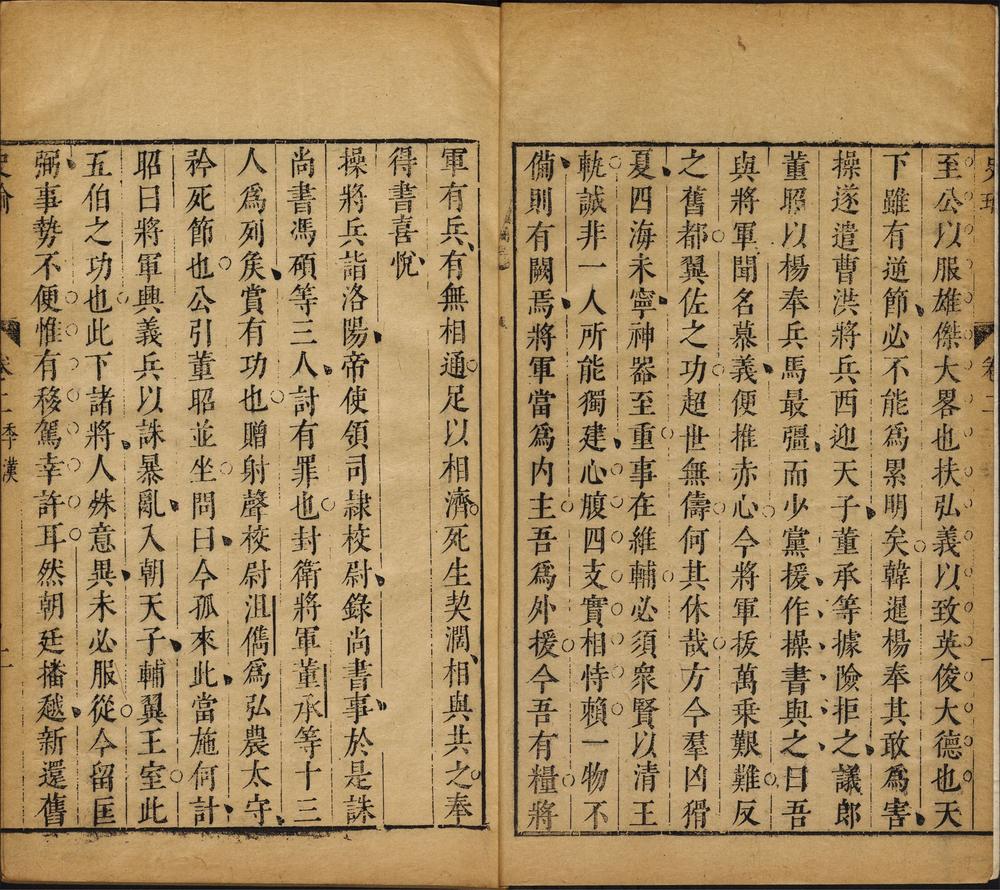 至公以服雄傑大畧也扶弘義以致英俊大德也天
下雖有逆節必不能爲累明矣韓暹楊奉其敢爲害
操遂遣曹洪將兵西迎天子董承等據險拒之議郎
董昭以楊奉兵馬最彊而少黨援作操書與之曰吾
與將軍聞名慕義便推赤心今將軍拔萬乗艱難反
之舊都翼佐之功超世無儔何其休哉方今羣凶猾
夏四海未寧神器至重事在維輔必須衆賢以清王
軌誠非一人所能獨建心腹四支實相恃賴一物不
備則有闕焉將軍當爲内主吾爲外援今吾有糧將
軍有兵有無相通足以相濟死生契濶相與共之奉
得書喜悅
操將兵詣洛陽帝使領司隷校尉錄尚書事於是誅
尚書馮碩等三人討有罪也封衛將軍董承等十三
人爲列矦賞有功也贈射聲校尉沮儁爲弘農太守
矜死節也公引董昭並坐問曰今孤來此當施何計
昭曰將軍興義兵以誅暴亂入朝天子輔翼王室此
五伯之功也此下諸將人殊意異未必服從今留匡
弼事勢不便惟有移駕幸許耳然朝廷播越新還舊
卷二
卷二 季漢